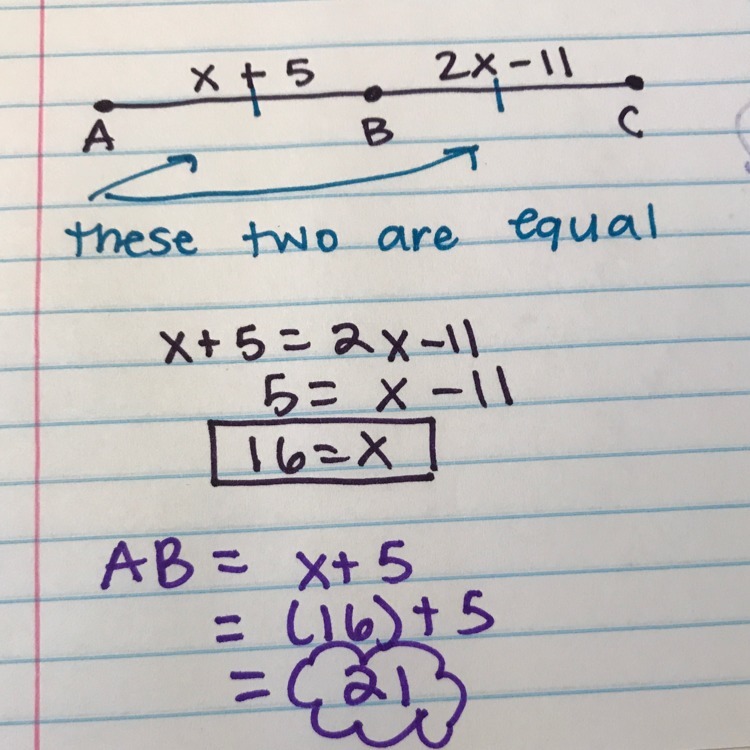 x + 5 2x - 11
A B C
these two are equal
x + 5 = 2x - 11
5 = x - 11
16 = x
AB = x + 5
= (16) + 5
= 21